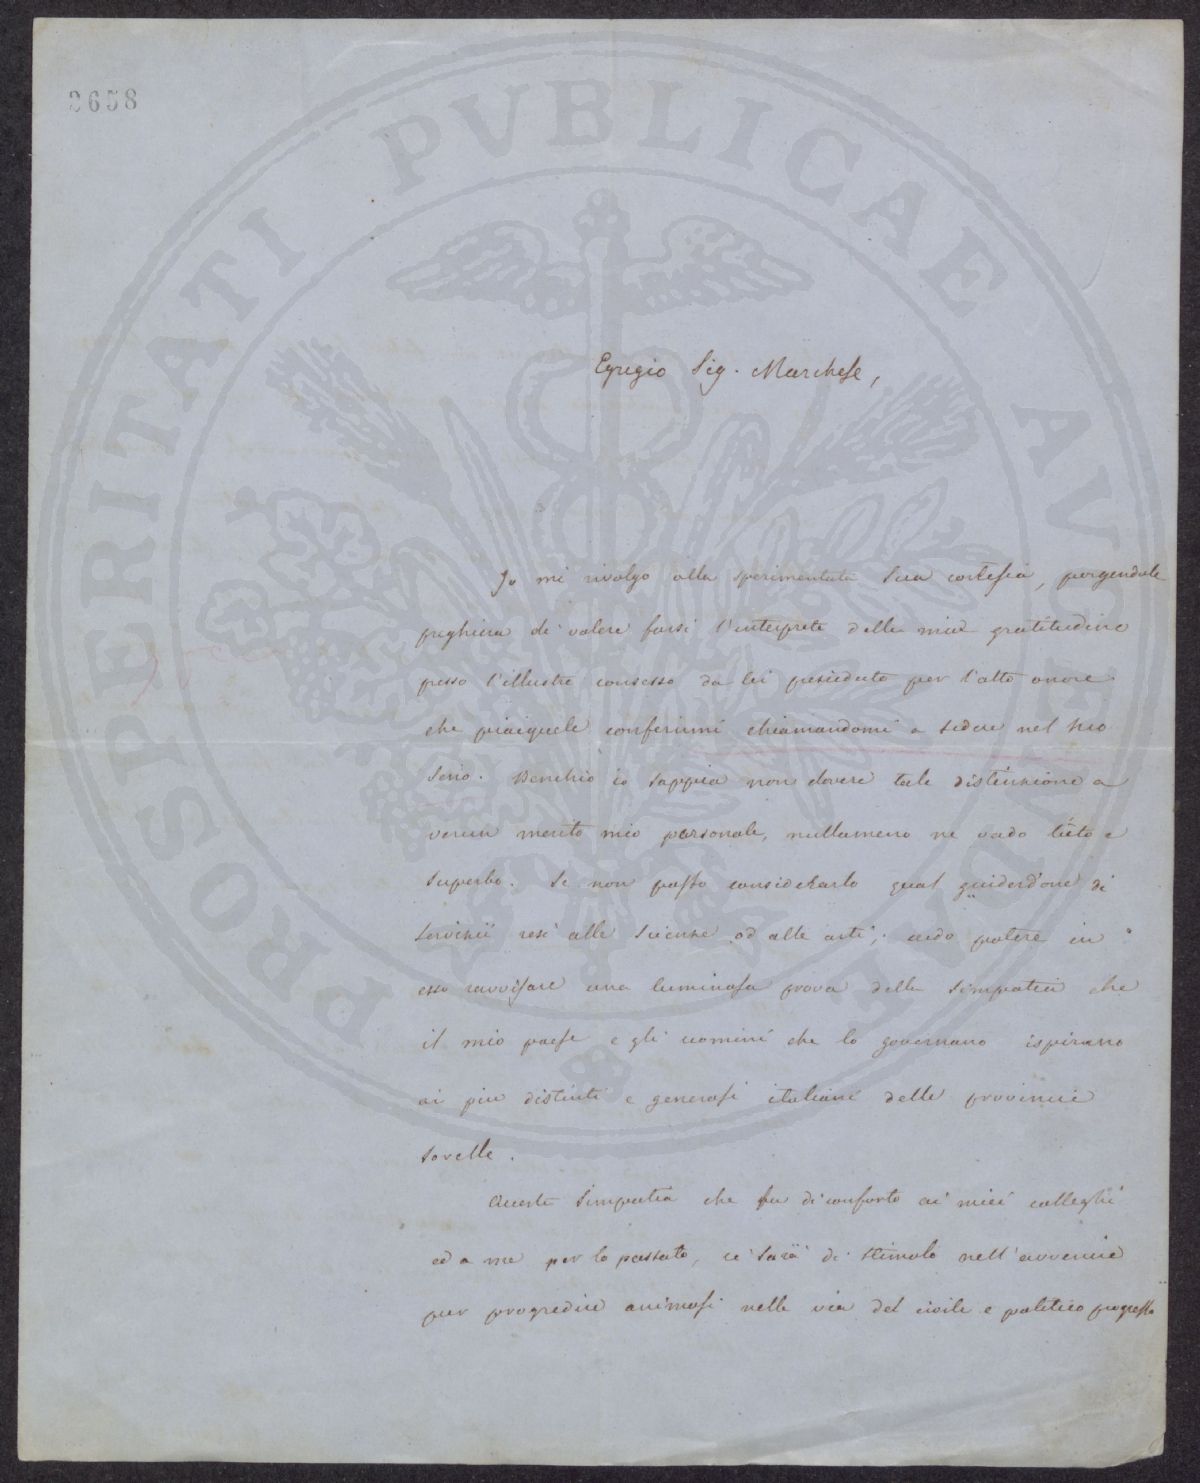 2658
PROSPERITATI PVBLICAE AVGENDAE
Egregio Sig. Marchese,
Io mi rivolgo alla sperimentata Sua cortesia, porgendole
preghiera di volere farsi l'interprete della mia gratitudine
presso l'illustre consesso da lei presieduto per l'alto onore
che piacquele conferirmi chiamandomi a sedere nel suo
seno. Benchè io sappia non dovere tale distinzione a
verun merito mio personale, nullameno ne vado lieto e
superbo. Se non posso considerarlo qual guiderdone di
servizii resi alle scienze od alle arti; credo potere in
esso ravvisare una luminosa prova della simpatia che
il mio paese e gli uomini che lo governano ispirano
ai più distinti e generosi italiani delle provincie
sorelle.
Questa simpatia che fu di conforto ai miei colleghi
ed a me per lo passato, ci sarà di stimolo nell'avvenire
per progredire animosi nella via del civile e politico progresso